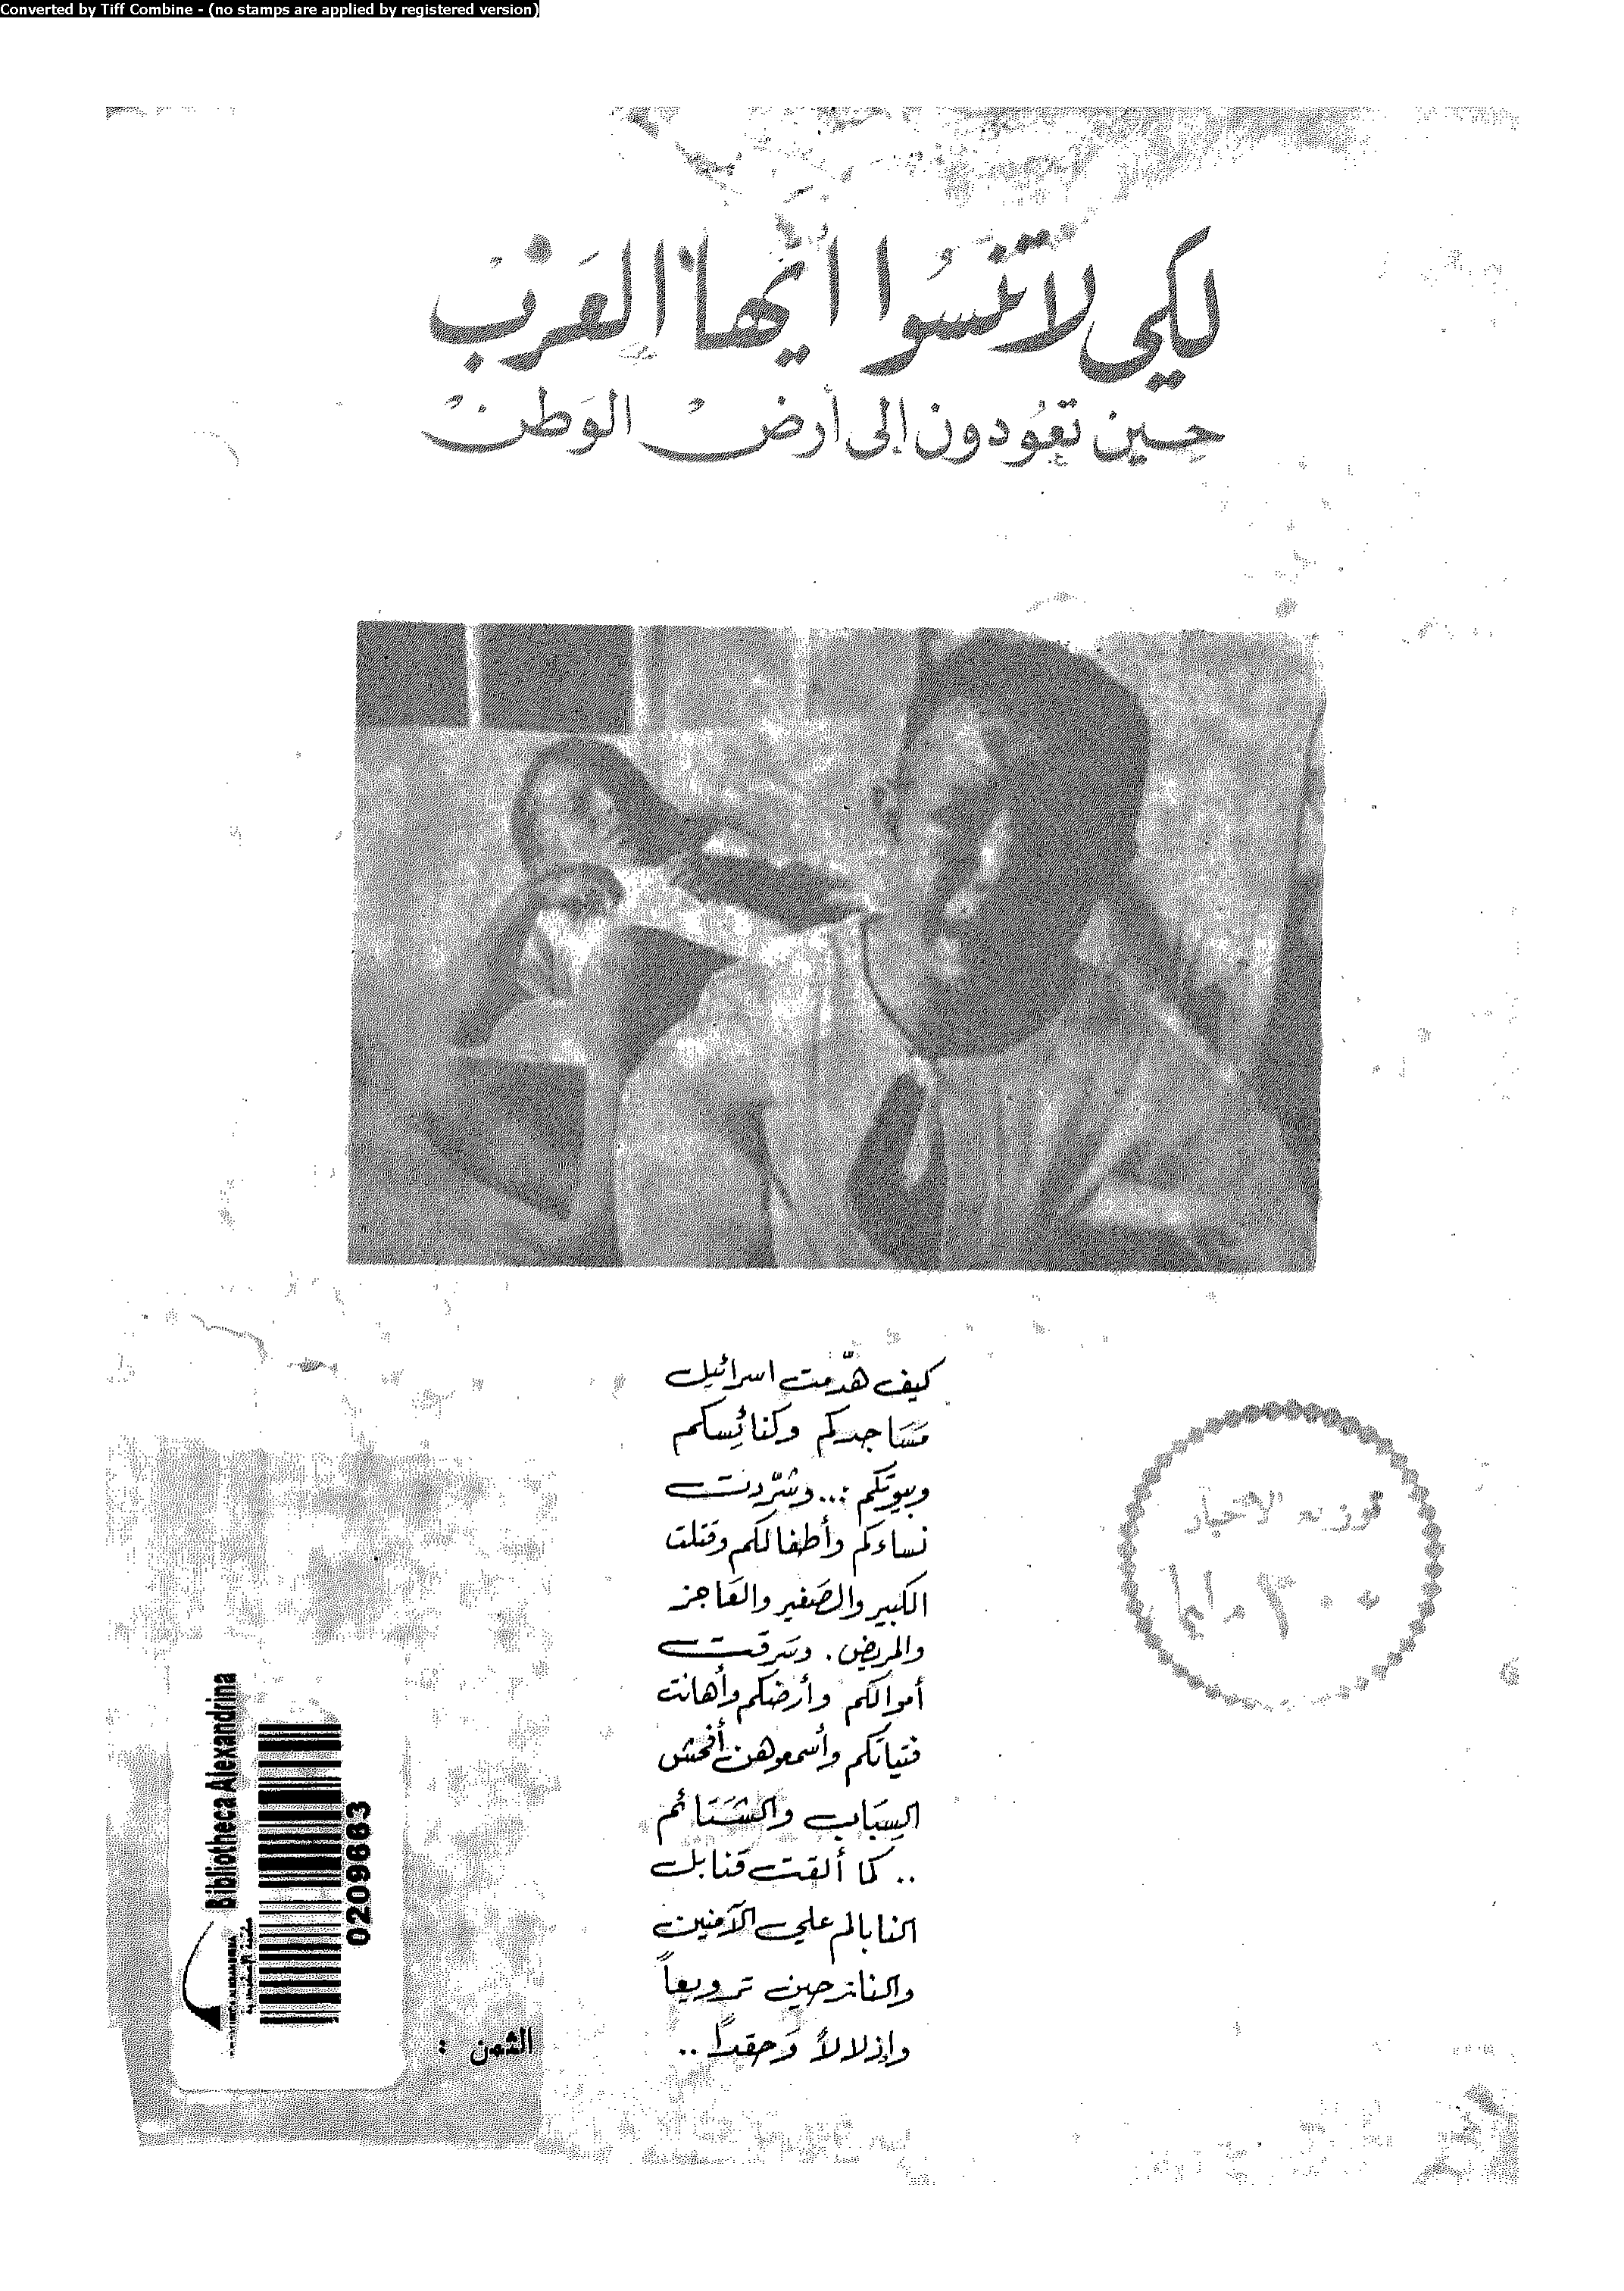 Converted by Tiff Combine - (no stamps are applied by registered version)
لكي لا تنسوا أيها العَربْ
حين تعُودون إلى أرضْ الوَطنْ
كيف هدّمت اسرائيل
مَسَاجدكم وكنائِسكم
وبيوتكم :.. وشرّدت
نساءكم وأطفالكم وقتلت
الكبير والصَغير والعَاجز
والمريض . وسَرقت
أموالكم وأرضكم وأهانت
فتياتكم وأسمعوهن أفحش
السِبَاب والشَتَائم
.. كما ألقت قنابل
النابالم على الآمنين
والنازحين ترويعاً
وإذلالاً وَحقداً ..
الثمن :
Bibliotheca Alexandrina
0209663